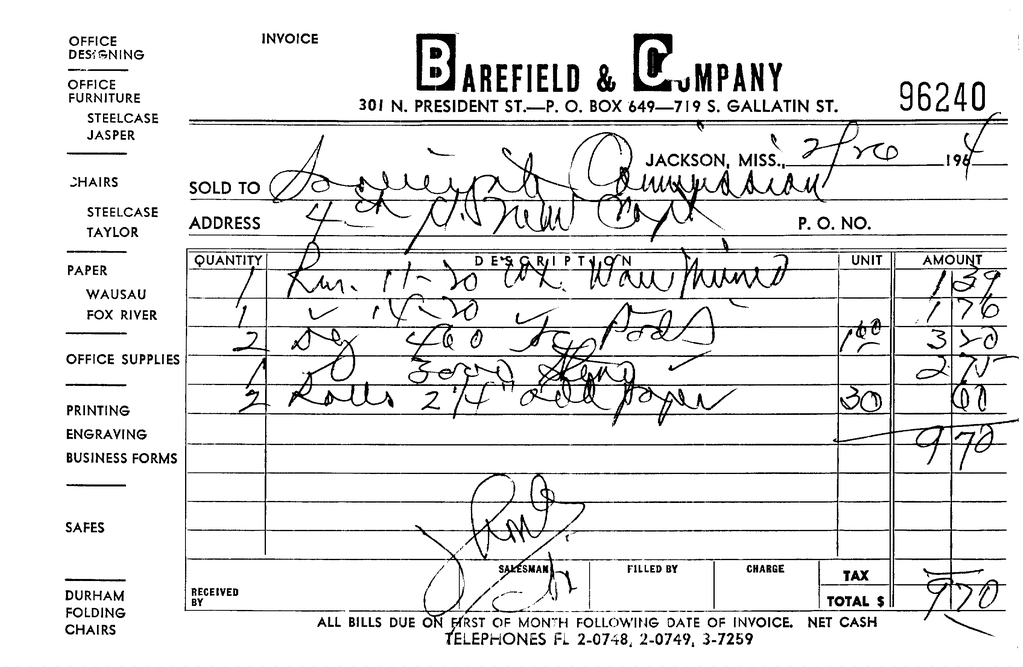 INVOICE
BAREFIELD & COMPANY
301 N. PRESIDENT ST.—P. O. BOX 649—719 S. GALLATIN ST.
96240
JACKSON, MISS., 2/26 1964
SOLD TO Sovereignty Commission
ADDRESS P. O. NO.
OFFICE
DESIGNING
OFFICE
FURNITURE
STEELCASE
JASPER
CHAIRS
STEELCASE
TAYLOR
PAPER
WAUSAU
FOX RIVER
OFFICE SUPPLIES
PRINTING
ENGRAVING
BUSINESS FORMS
SAFES
DURHAM
FOLDING
CHAIRS
QUANTITY DESCRIPTION UNIT AMOUNT
1 11-20 1 39
1 14-20 1 76
2 Dz 460 Pads 1 60 3 20
1 Steno 2 75
2 Rolls 2 1/4" Add paper 30 60
9 70
RECEIVED
BY
SALESMAN FILLED BY CHARGE
TAX —
TOTAL $ 9 70
ALL BILLS DUE ON FIRST OF MONTH FOLLOWING DATE OF INVOICE. NET CASH
TELEPHONES FL 2-0748, 2-0749, 3-7259